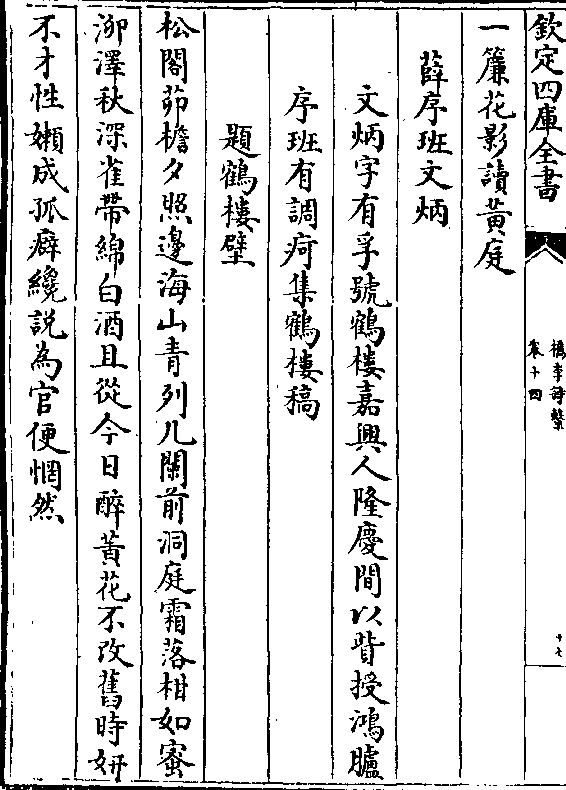 欽定四庫全書
檇李詩繫
卷十四
十七
一簾花影讀黃庭
薛序班文炳
文炳字有孚號鶴樓嘉興人隆慶間以貲授鴻臚
序班有調疴集鶴樓稿
題鶴樓壁
松閣茆檐夕照邊海山青列几闌前洞庭霜落柑如蜜
泖澤秋深雀帶綿白酒且從今日醉黃花不改舊時妍
不才性嬾成孤癖纔說為官便惘然